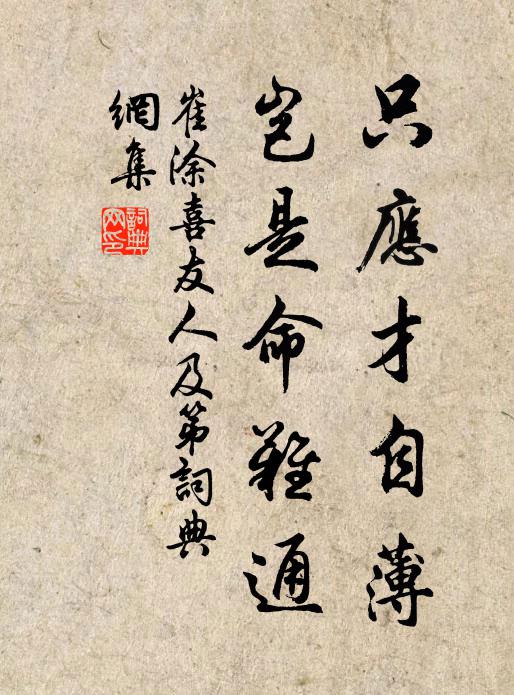 只應才自薄
豈是命難通
崔涂喜友人及第詞典
網集
詞典
网印